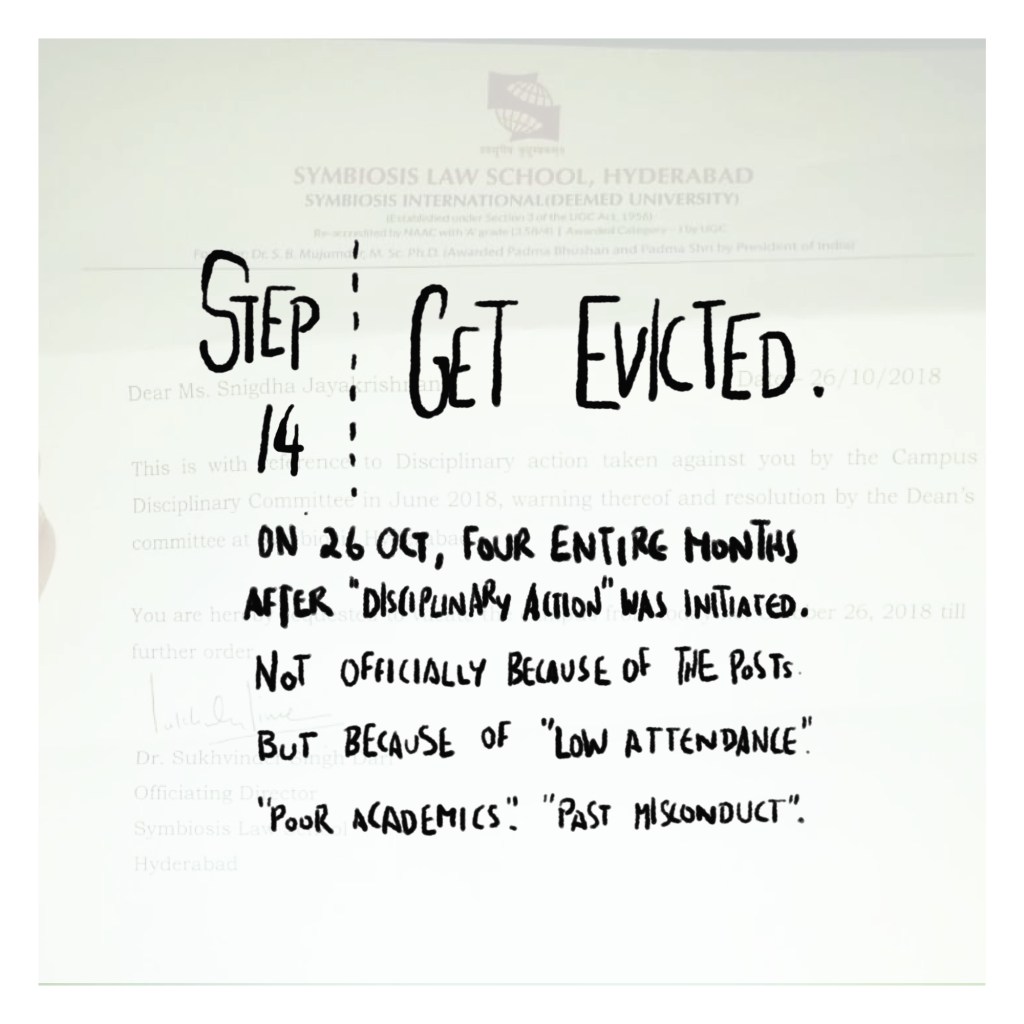 SYMBIOSIS LAW SCHOOL, HYDERABAD
SYMBIOSIS INTERNATIONAL (DEEMED UNIVERSITY)
(Established under Section 3 of the UGC Act, 1956)
Re-accredited by NAAC with 'A' grade (3.58/4) | Awarded Category - I by UGC
Dr. S. B. Mujumdar, M. Sc. Ph.D. (Awarded Padma Bhushan and Padma Shri by President of India)
STEP 14
GET EVICTED.
Dear Ms. Snigdha Jayakrishnan
26/10/2018
This is with reference to Disciplinary action taken against you by the Campus
Disciplinary Committee in June 2018, warning thereof and resolution by the Dean's
committee at
ON 26 OCT, FOUR ENTIRE MONTHS
AFTER "DISCIPLINARY ACTION" WAS INITIATED.
You are 26, 2018 till
further order
NOT OFFICIALLY BECAUSE OF THE POSTS.
BUT BECAUSE OF "LOW ATTENDANCE".
Dr. Sukhvinder Singh
Officiating Director
"POOR ACADEMICS". "PAST MISCONDUCT".
Symbiosis Law
Hyderabad